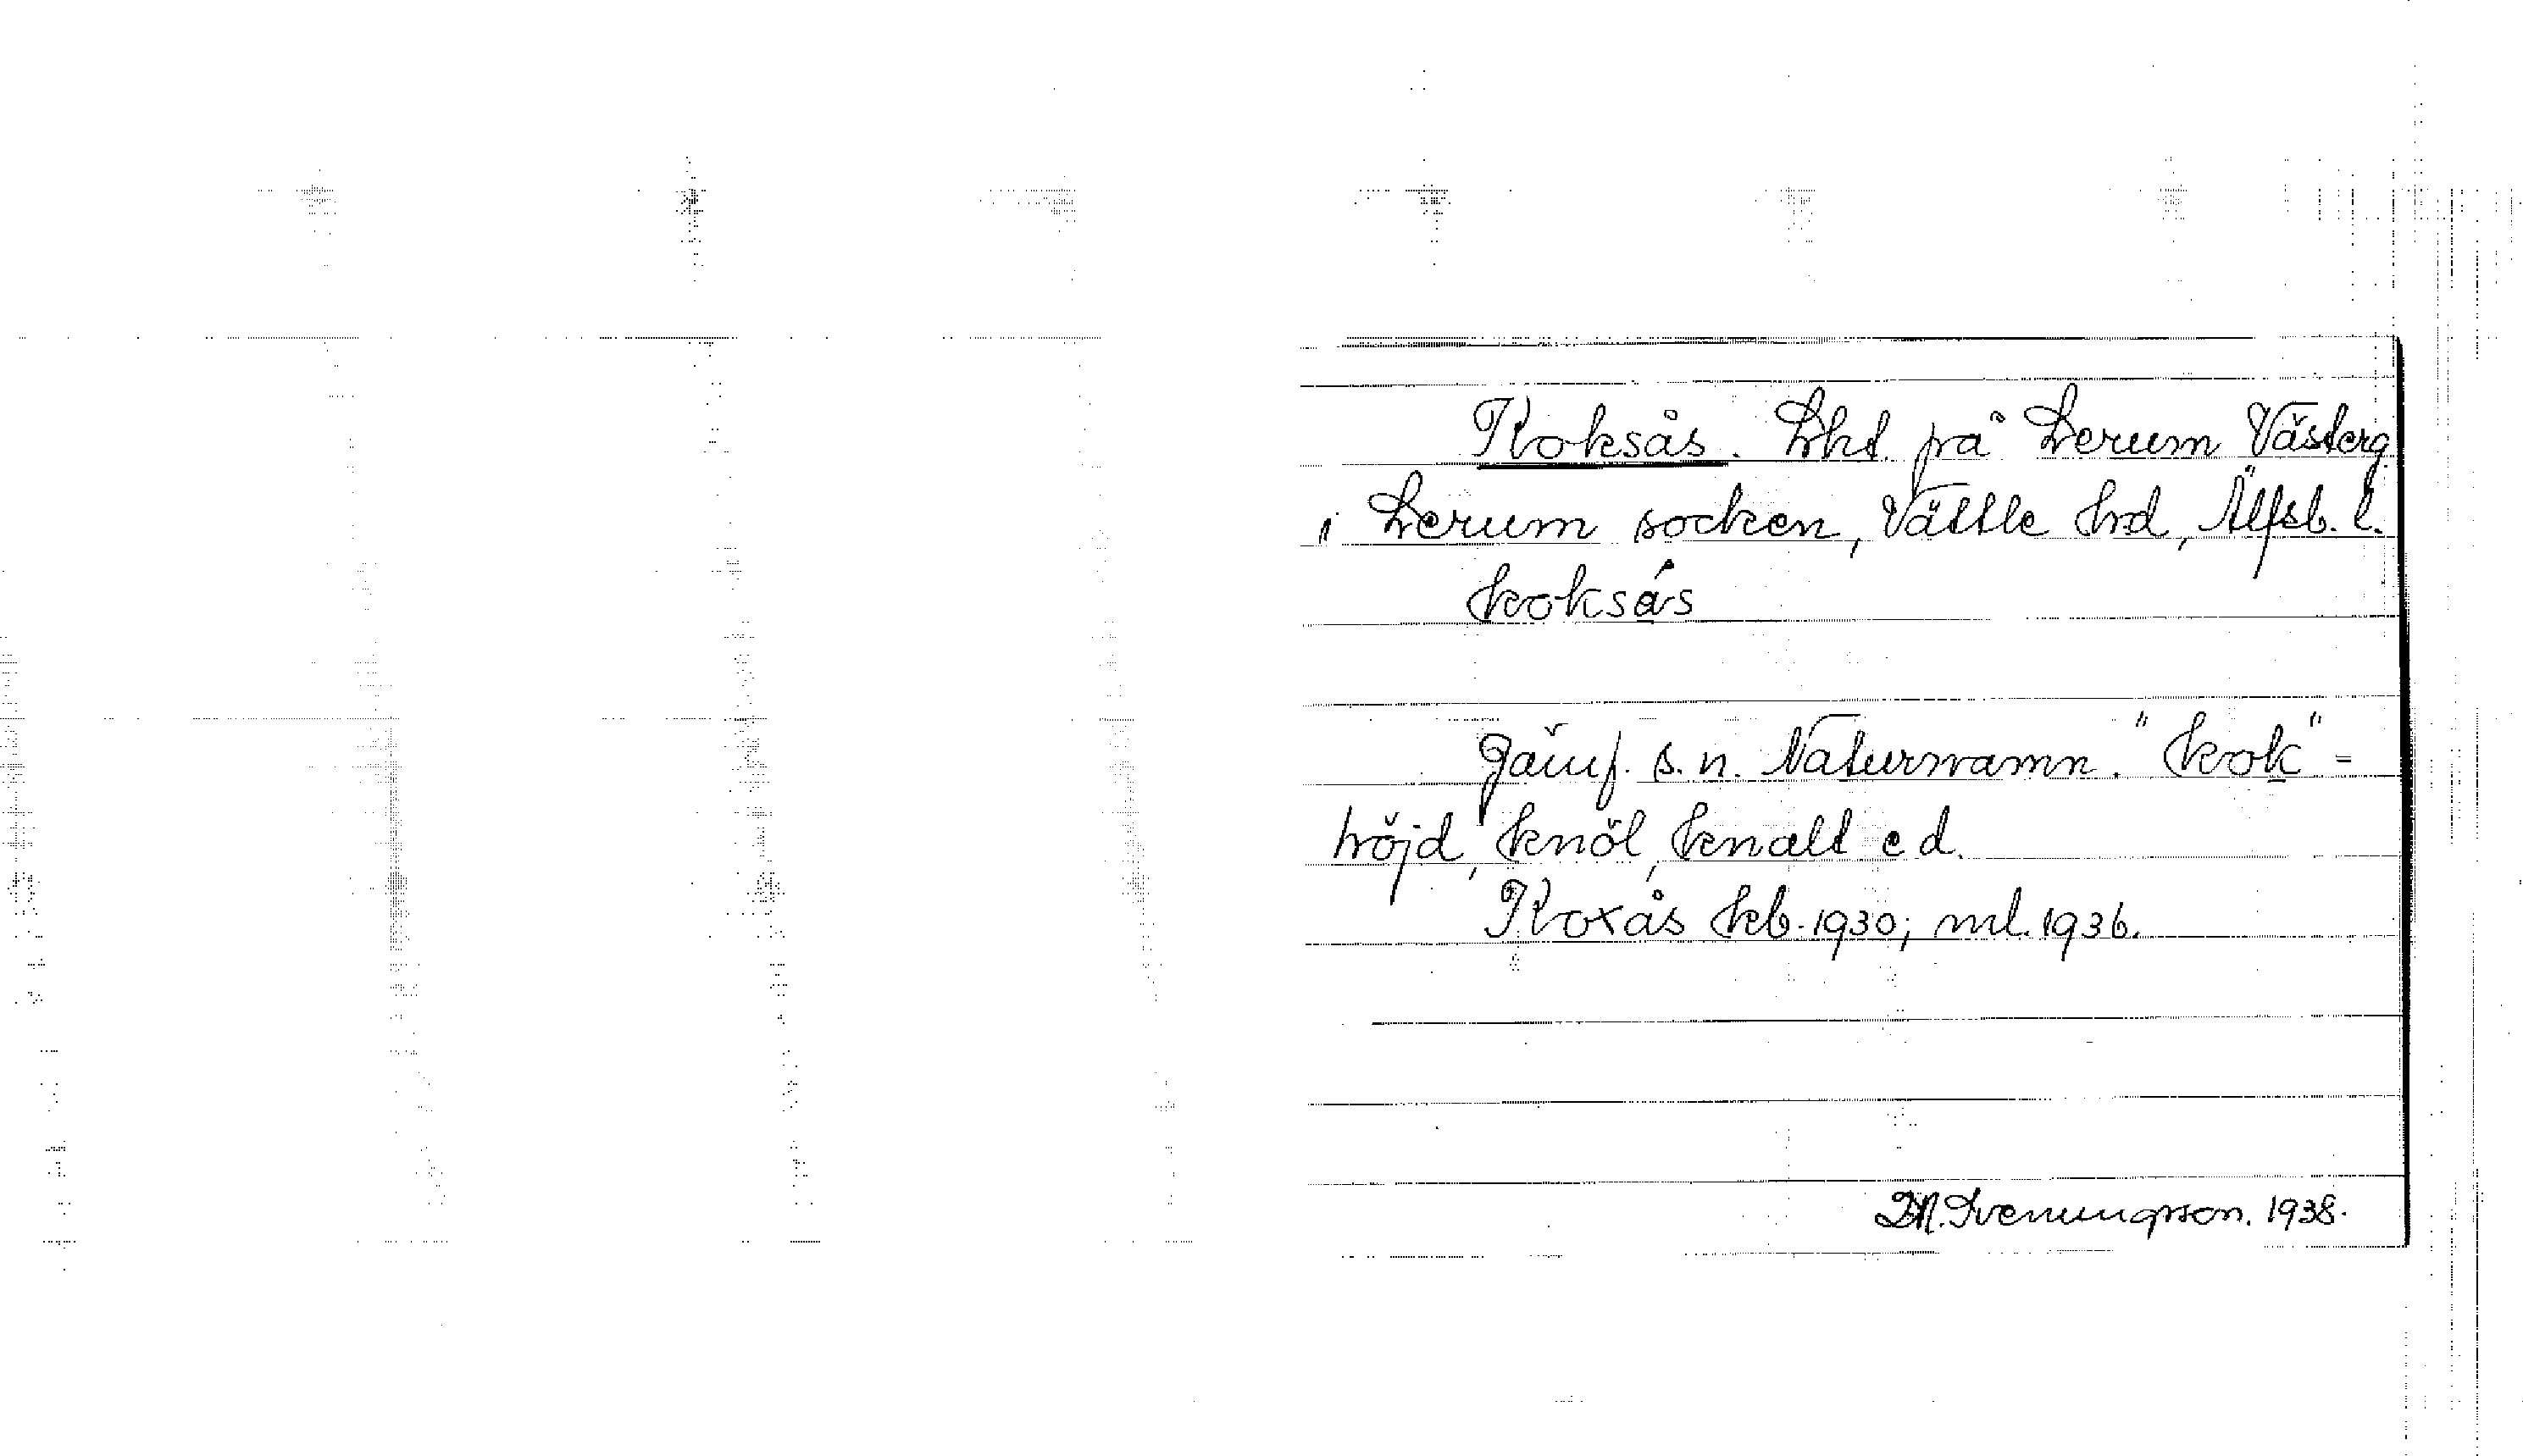 Koksås. Lht. på Lerum Västerg
i Lerum socken, Vättle hd, Älfsb. l.
koksás
Jämf. s. n. Naturnamn. "kok" =
höjd, knöl, knalt e d.
Koxås kb. 1930; ml. 1936.
M. Svenungsson. 1938.